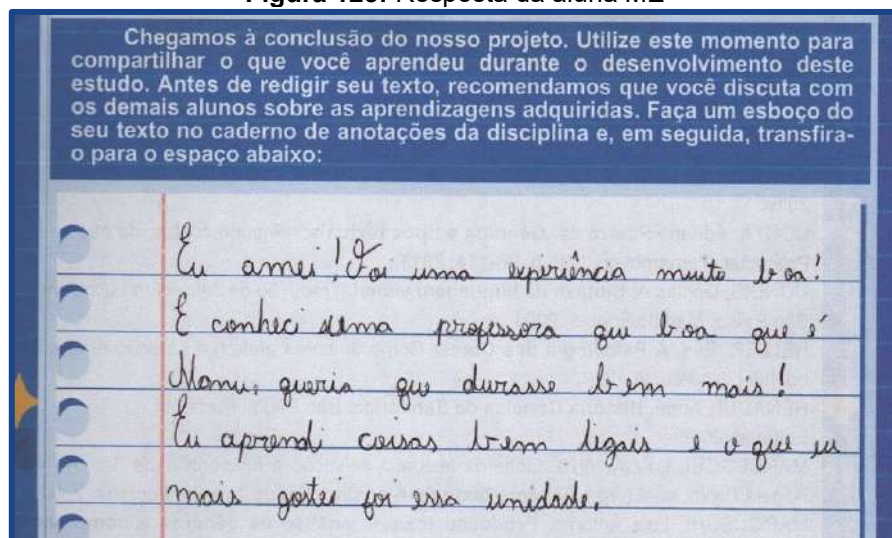 Chegamos à conclusão do nosso projeto. Utilize este momento para
compartilhar o que você aprendeu durante o desenvolvimento deste
estudo. Antes de redigir seu texto, recomendamos que você discuta com
os demais alunos sobre as aprendizagens adquiridas. Faça um esboço do
seu texto no caderno de anotações da disciplina e, em seguida, transfira-
o para o espaço abaixo:
Eu amei! Foi uma experiência muito boa!
E conheci uma professora que boa que é
queria que durasse bem mais!
Eu aprendi coisas bem legais e o que eu
mais gostei foi essa unidade.